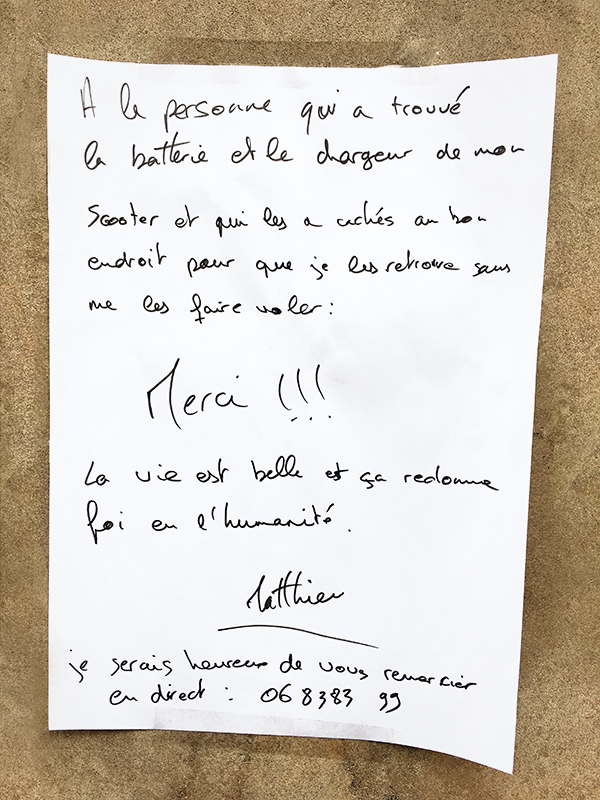 A la personne qui a trouvé
la batterie et le chargeur de mon
Scooter et qui les a cachés au bon
endroit pour que je les retrouve sans
me les faire voler :
Merci !!!
La vie est belle et ça redonne
foi en l'humanité.
Matthieu
je serais heureux de vous remercier
en direct : 06 83 83 99